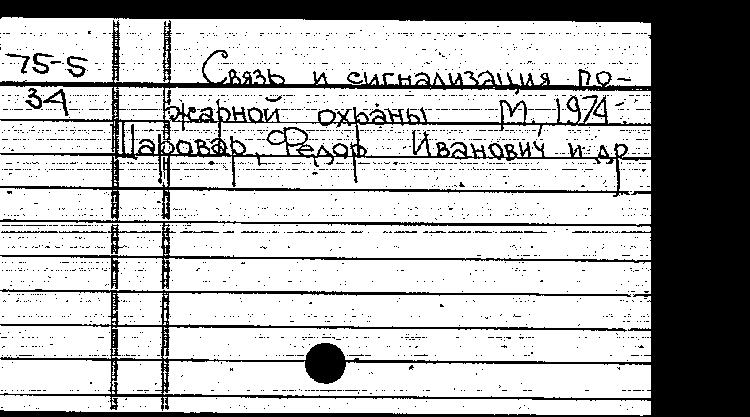 75-5 Связь и сигнализация по-
34 жарной охраны М., 1974.
Шаровар, Федор Иванович и др